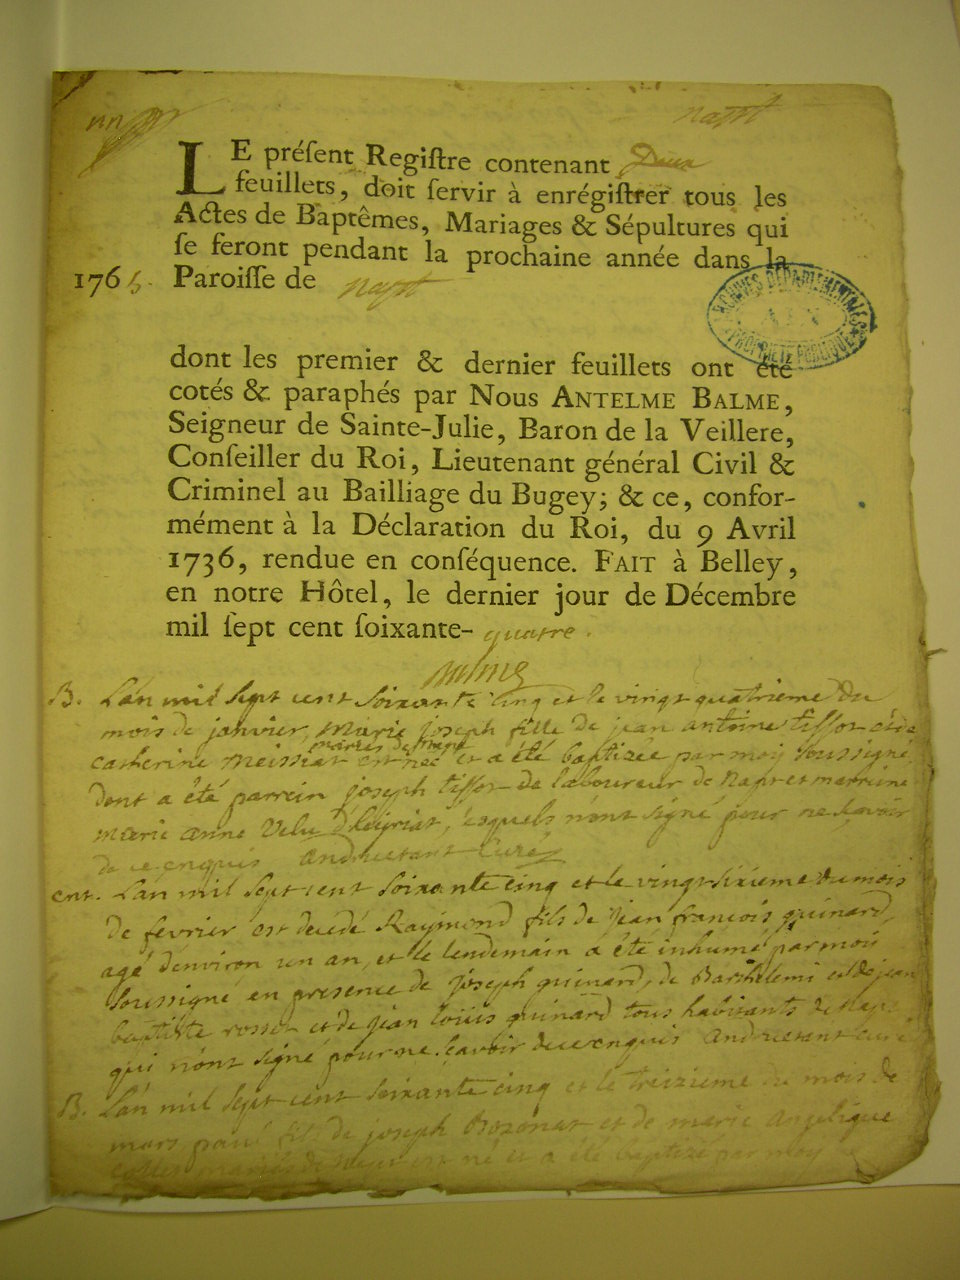 napt
LE préſent Regiſtre contenant Deux
feuillets, doit ſervir à enrégiſtrer tous les
Actes de Baptêmes, Mariages & Sépultures qui
ſe feront pendant la prochaine année dans la
1765. Paroiſſe de napt
ARCHIVES DÉPARTEMENTALES
AIN
PROPRIÉTÉ PUBLIQUE
dont les premier & dernier feuillets ont été
cotés & paraphés par Nous ANTELME BALME,
Seigneur de Sainte-Julie, Baron de la Veillere,
Conſeiller du Roi, Lieutenant général Civil &
Criminel au Bailliage du Bugey; & ce, confor-
mément à la Déclaration du Roi, du 9 Avril
1736, rendue en conſéquence. FAIT à Belley,
en notre Hôtel, le dernier jour de Décembre
mil ſept cent ſoixante- quatre.
Balme
B. L'an mil sept cent soixante cinq et le vingt quatrieme du
mois de janvier, Marie joseph fille de jean antoine tissot et de
mariés de napt
catherine Meissiat est née et a été baptizée par moy soussigné,
dont a été parrein joseph tissot laboureur de Napt et marreine
marie anne Velu d'heyriat, lesquels n'ont signé pour ne sçavoir
de ce enquis Andruetant Curé
ent. L'an mil sept cent soixante cinq et le vingt sixieme du mois
de fevrier est decedé Raymond fils de jean françois guinard,
agé d'environ un an, et le lendemain a été inhumé par moi
soussigné en presence de joseph guinard, de Barthelemi et de jean
baptiste rosset et de jean loüis guinard tous habitants de Napt
qui n'ont signé pour ne sçavoir de ce enquis Andruetant curé
B. L'an mil sept cent soixante cinq et le treizieme du mois de
mars paul fils de joseph Bozonat et de marie Angelique
mariés de Napt est né et a été baptizé par moy